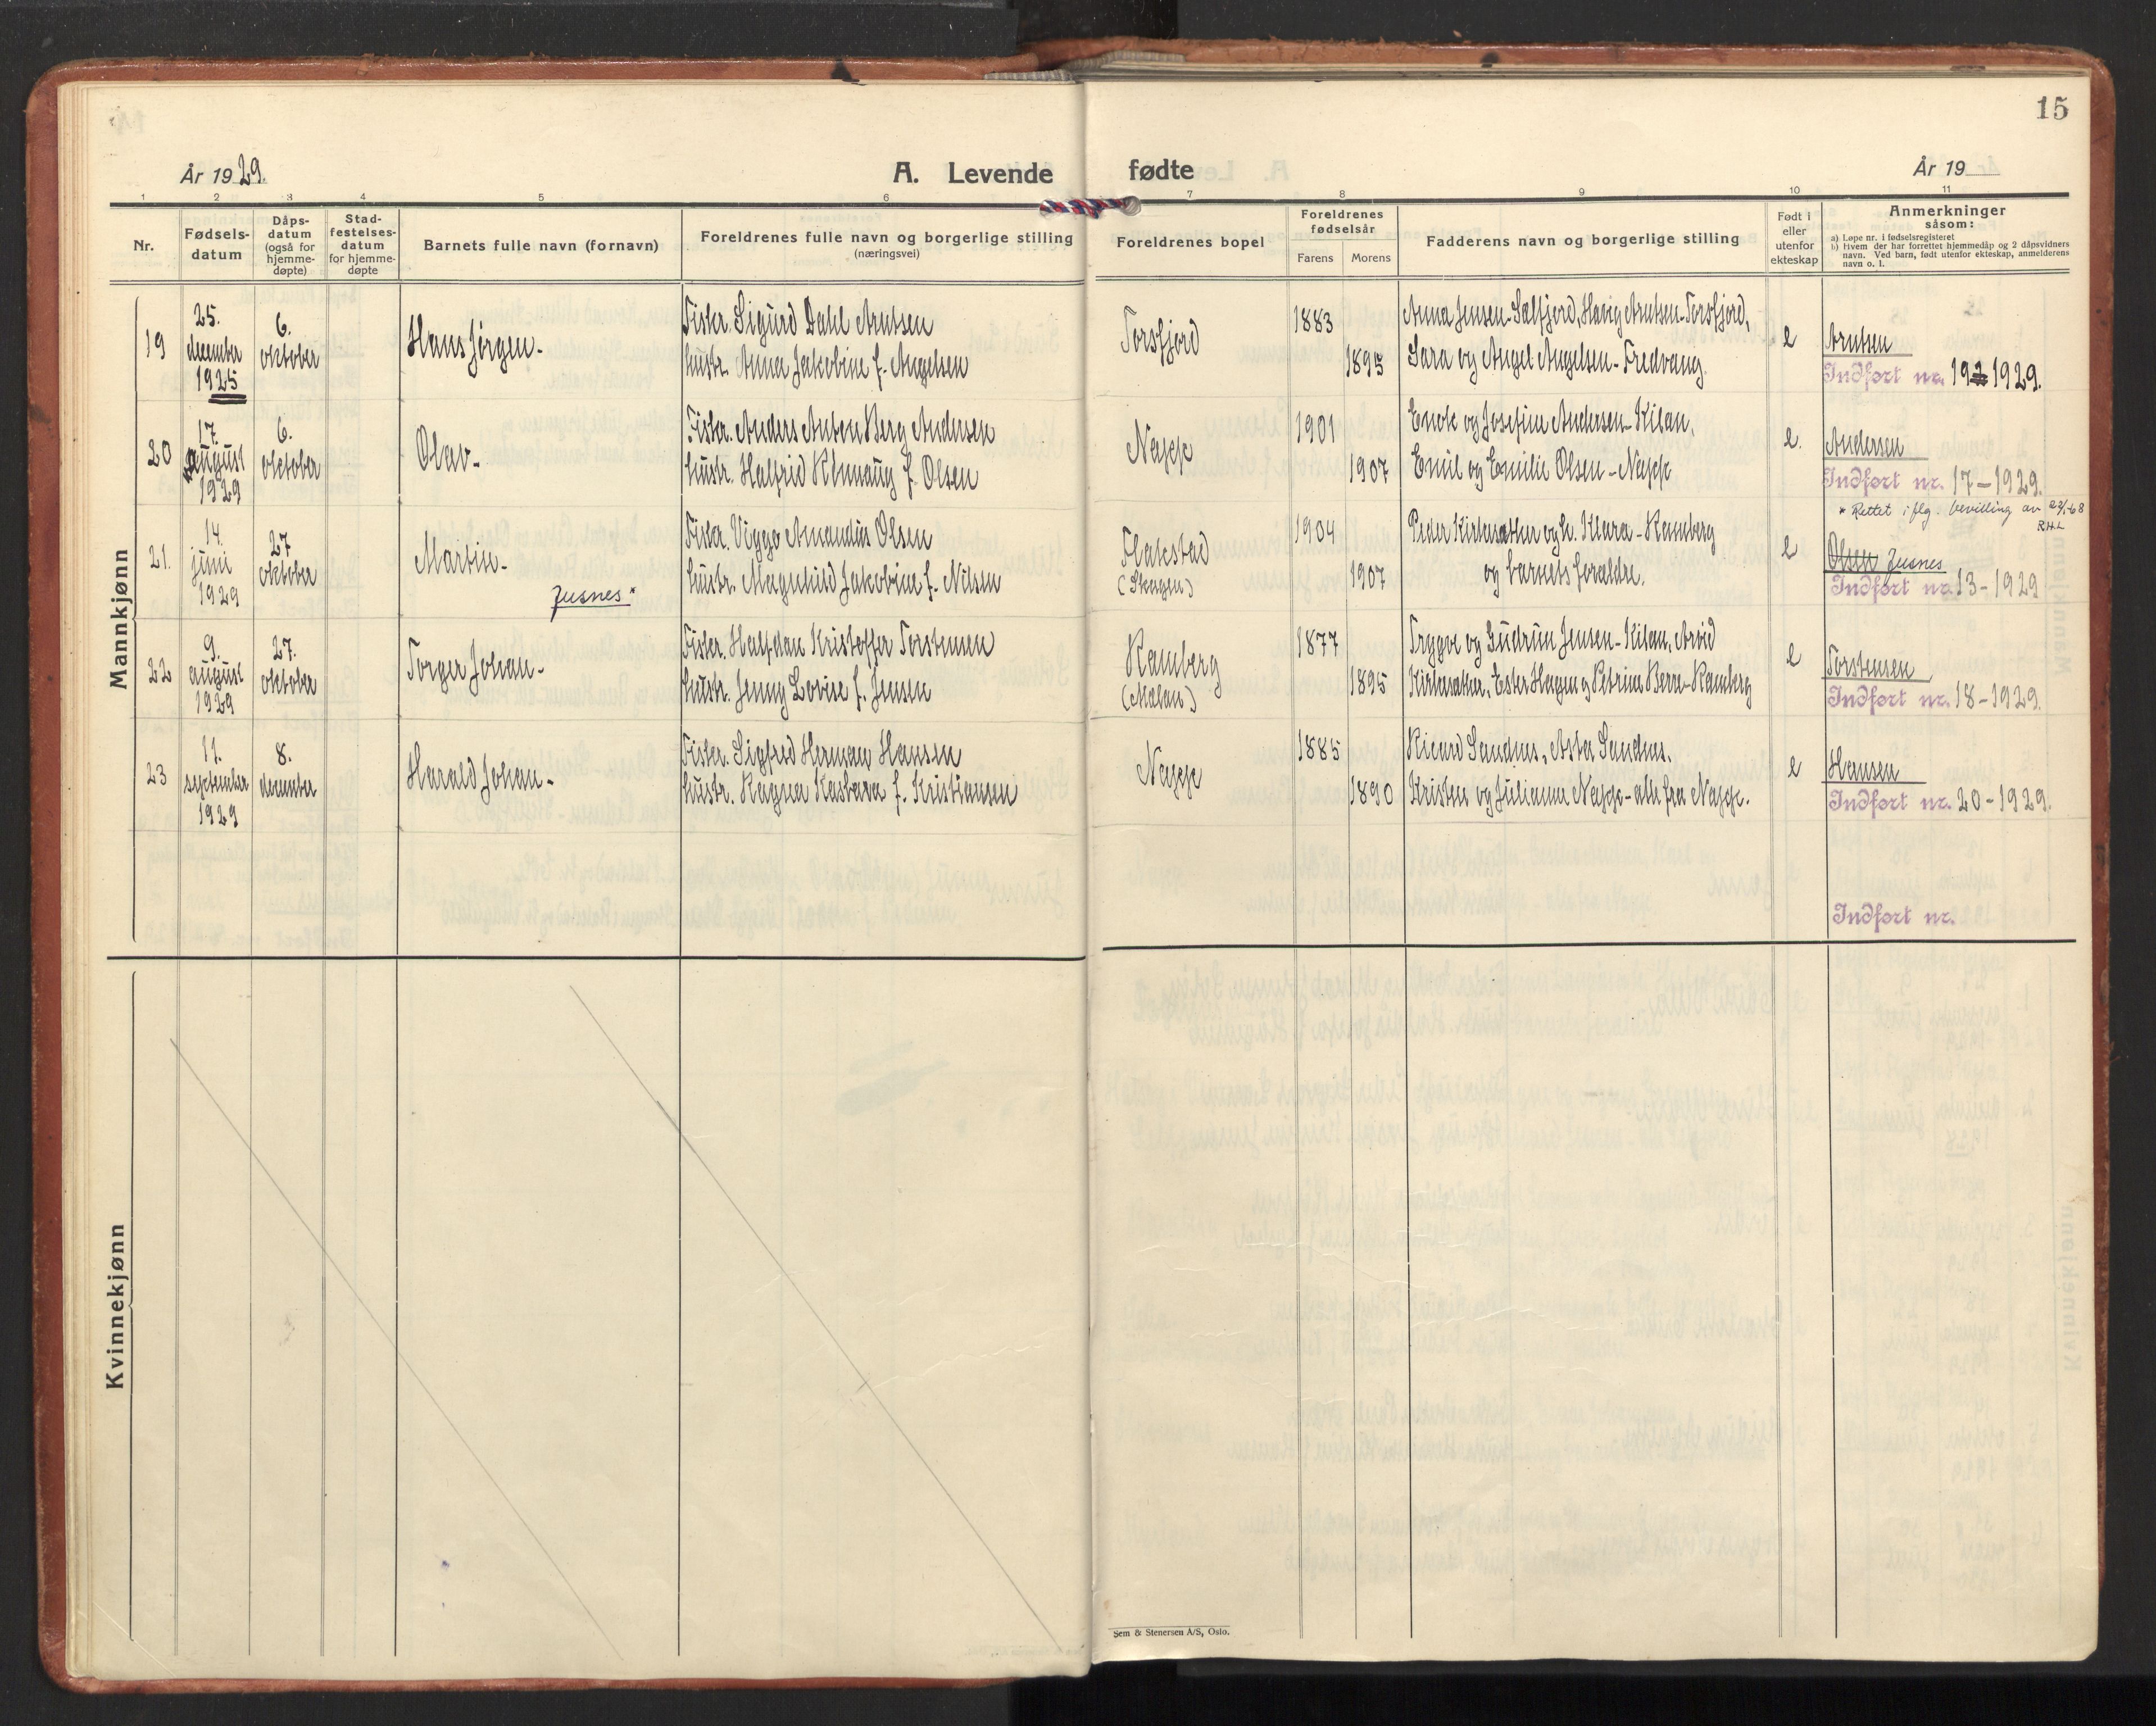 15
År 1929.
A. Levende fødte
År 19
1 2 3 4 5 6 7 8 9 10 11
Nr.
Fødsels-
datum
Dåps-
datum
(også for
hjemme-
døpte)
Stad-
festelses-
datum
for hjemme-
døpte
Barnets fulle navn (fornavn)
Foreldrenes fulle navn og borgerlige stilling
(næringsvei)
Foreldrenes bopel
Foreldrenes
fødselsår
Farens Morens
Fadderens navn og borgerlige stilling
Født i
eller
utenfor
ekteskap
Anmerkninger
såsom:
a) Løpe nr. i fødselsregisteret
b) Hvem der har forrettet hjemmedåp og 2 dåpsvidners
navn. Ved barn, født utenfor ekteskap, anmelderens
navn o. l.
Mannkjønn
19
25.
december
1925
6.
oktober
Hans Jørgen-
Fisker. Sigurd Dahl Arntsen
hustr. Anna Jakobine f. Angelsen
Torsfjord
1883
1895
Anna Jensen-Selfjord, Havig Arntsen-Torsfjord,
Sara og Angel Angelsen-Fredvang.
e
Arntsen
Indført nr. 1929.
20
17.
august
1929
6.
oktober
Olav-
Fisker. Anders Anton Berg Andersen
hustr. Halfrid f. Olsen
Napp
1901
1907
Enok og Josefine Andersen-Kilan,
Emil og Emilie Olsen-Napp
e.
Andersen
Indført nr. 17-1929.
* Rettet iflg. bevilling av 22/1-68
RHL
21.
14.
juni
1929
27
oktober
Martin-
Jusnes*
Fisker. Viggo Amandus Olsen
hustr. Magnhild Jakobine f. Nilsen
Flakstad
(Skagen)
1904
1907
Peder Kirkesæther og h. Klara-Ramberg
og barnets foreldre.
e
Olsen Jusnes
Indført nr. 13-1929
22
9.
august
1929
27.
oktober
Torger Johan-
Fisker. Halfdan Kristoffer Torstensen
hustr. Jenny Lovise f. Jensen
Ramberg
1877
1895
Trygve og Gudrun Jensen-Kilan, Arvid
Kirkesæther, Ester Hagen og Petrine Berre-Ramberg
e
Torstensen
Indført nr. 18-1929.
23
11.
september
1929
8.
december
Harald Johan-
Fisker. Sigfred Herman Hansen
hustr. Ragna Kastava f. Kristiansen
Napp
1885
1890
Ricard Sandnes, Asta Sandnes.
Kristen og Julianne Napp-alle fra Napp.
e
Hansen
Indført nr. 20-1929.
Indført nr.
Kvinnekjønn
Sem & Stenersen A/S, Oslo.